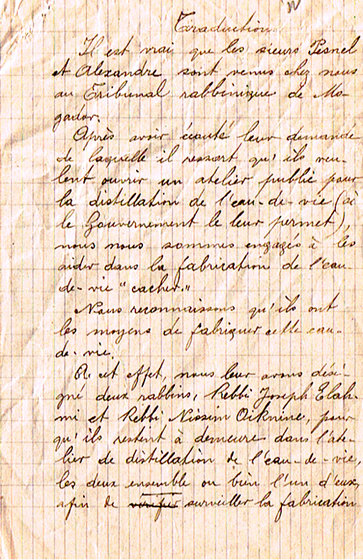 Traduction
Il est vrai que les sieurs Pesnel
et Alexandre sont venus chez nous
au Tribunal rabbinique de Mo-
gador.
Après avoir écouté leur demande
de laquelle il ressort qu'ils veu-
lent ouvrir un atelier public pour
la distillation de l'eau-de-vie (si
le Gouvernement le leur permet),
nous nous sommes engagés à les
aider dans la fabrication de l'eau-
de-vie "cacher."
Nous reconnaissons qu'ils ont
les moyens de fabriquer cette eau-
de-vie.
A cet effet, nous leur avons dési-
gné deux rabbins, Rebbi Joseph Elah-
mi et Rebbi Nissim Oiknine, pour
qu'ils restent à demeure dans l'ate-
lier de distillation de l'eau-de-vie,
les deux ensemble ou bien l'un d'eux,
afin de surveiller la fabrication